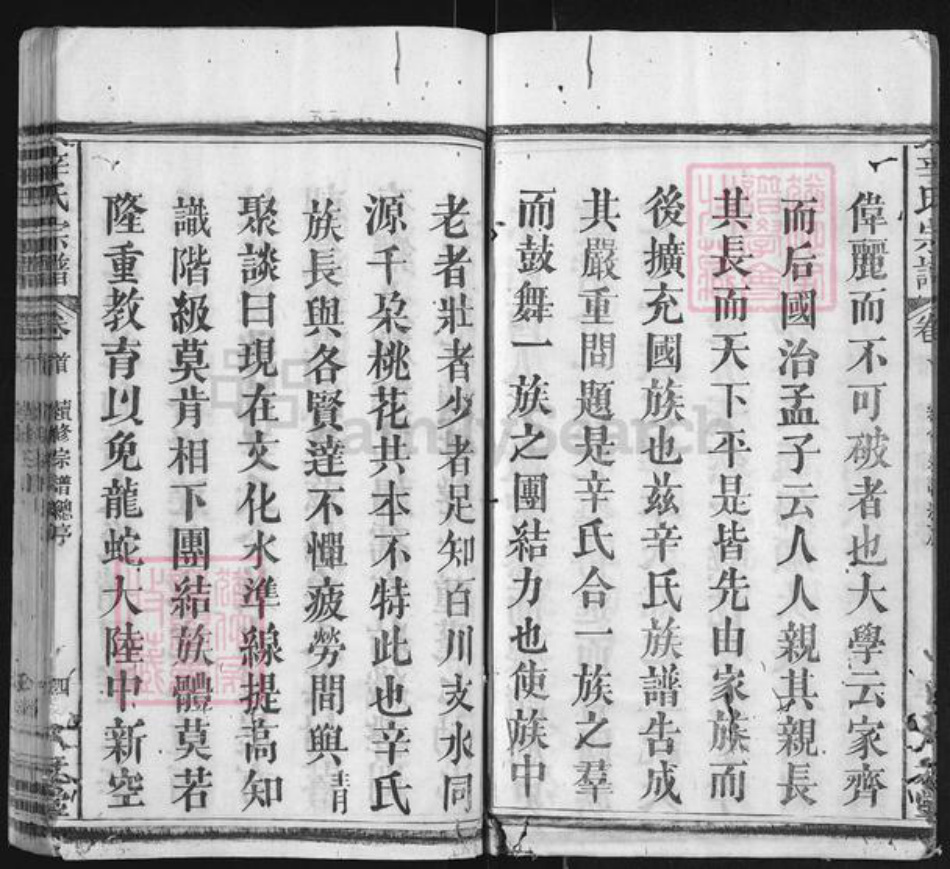 偉麗而不可破者也大學云家齊
而后國治孟子云人人親其親長
其長而天下平是皆先由家族而
後擴充國族也茲辛氏族譜告成
其嚴重問題是辛氏合一族之羣
而鼓舞一族之團結力也使族中
老者壯者少者足知百川支水同
源千朵桃花共本不特此也辛氏
族長與各賢達不憚疲勞間與青
聚談曰現在文化水準線提高知
識階級莫肯相下團結族體莫若
隆重教育以免龍蛇大陸中新空
辛氏宗譜 卷首 續修宗譜總序 四
辛氏宗譜 卷
FamilySearch